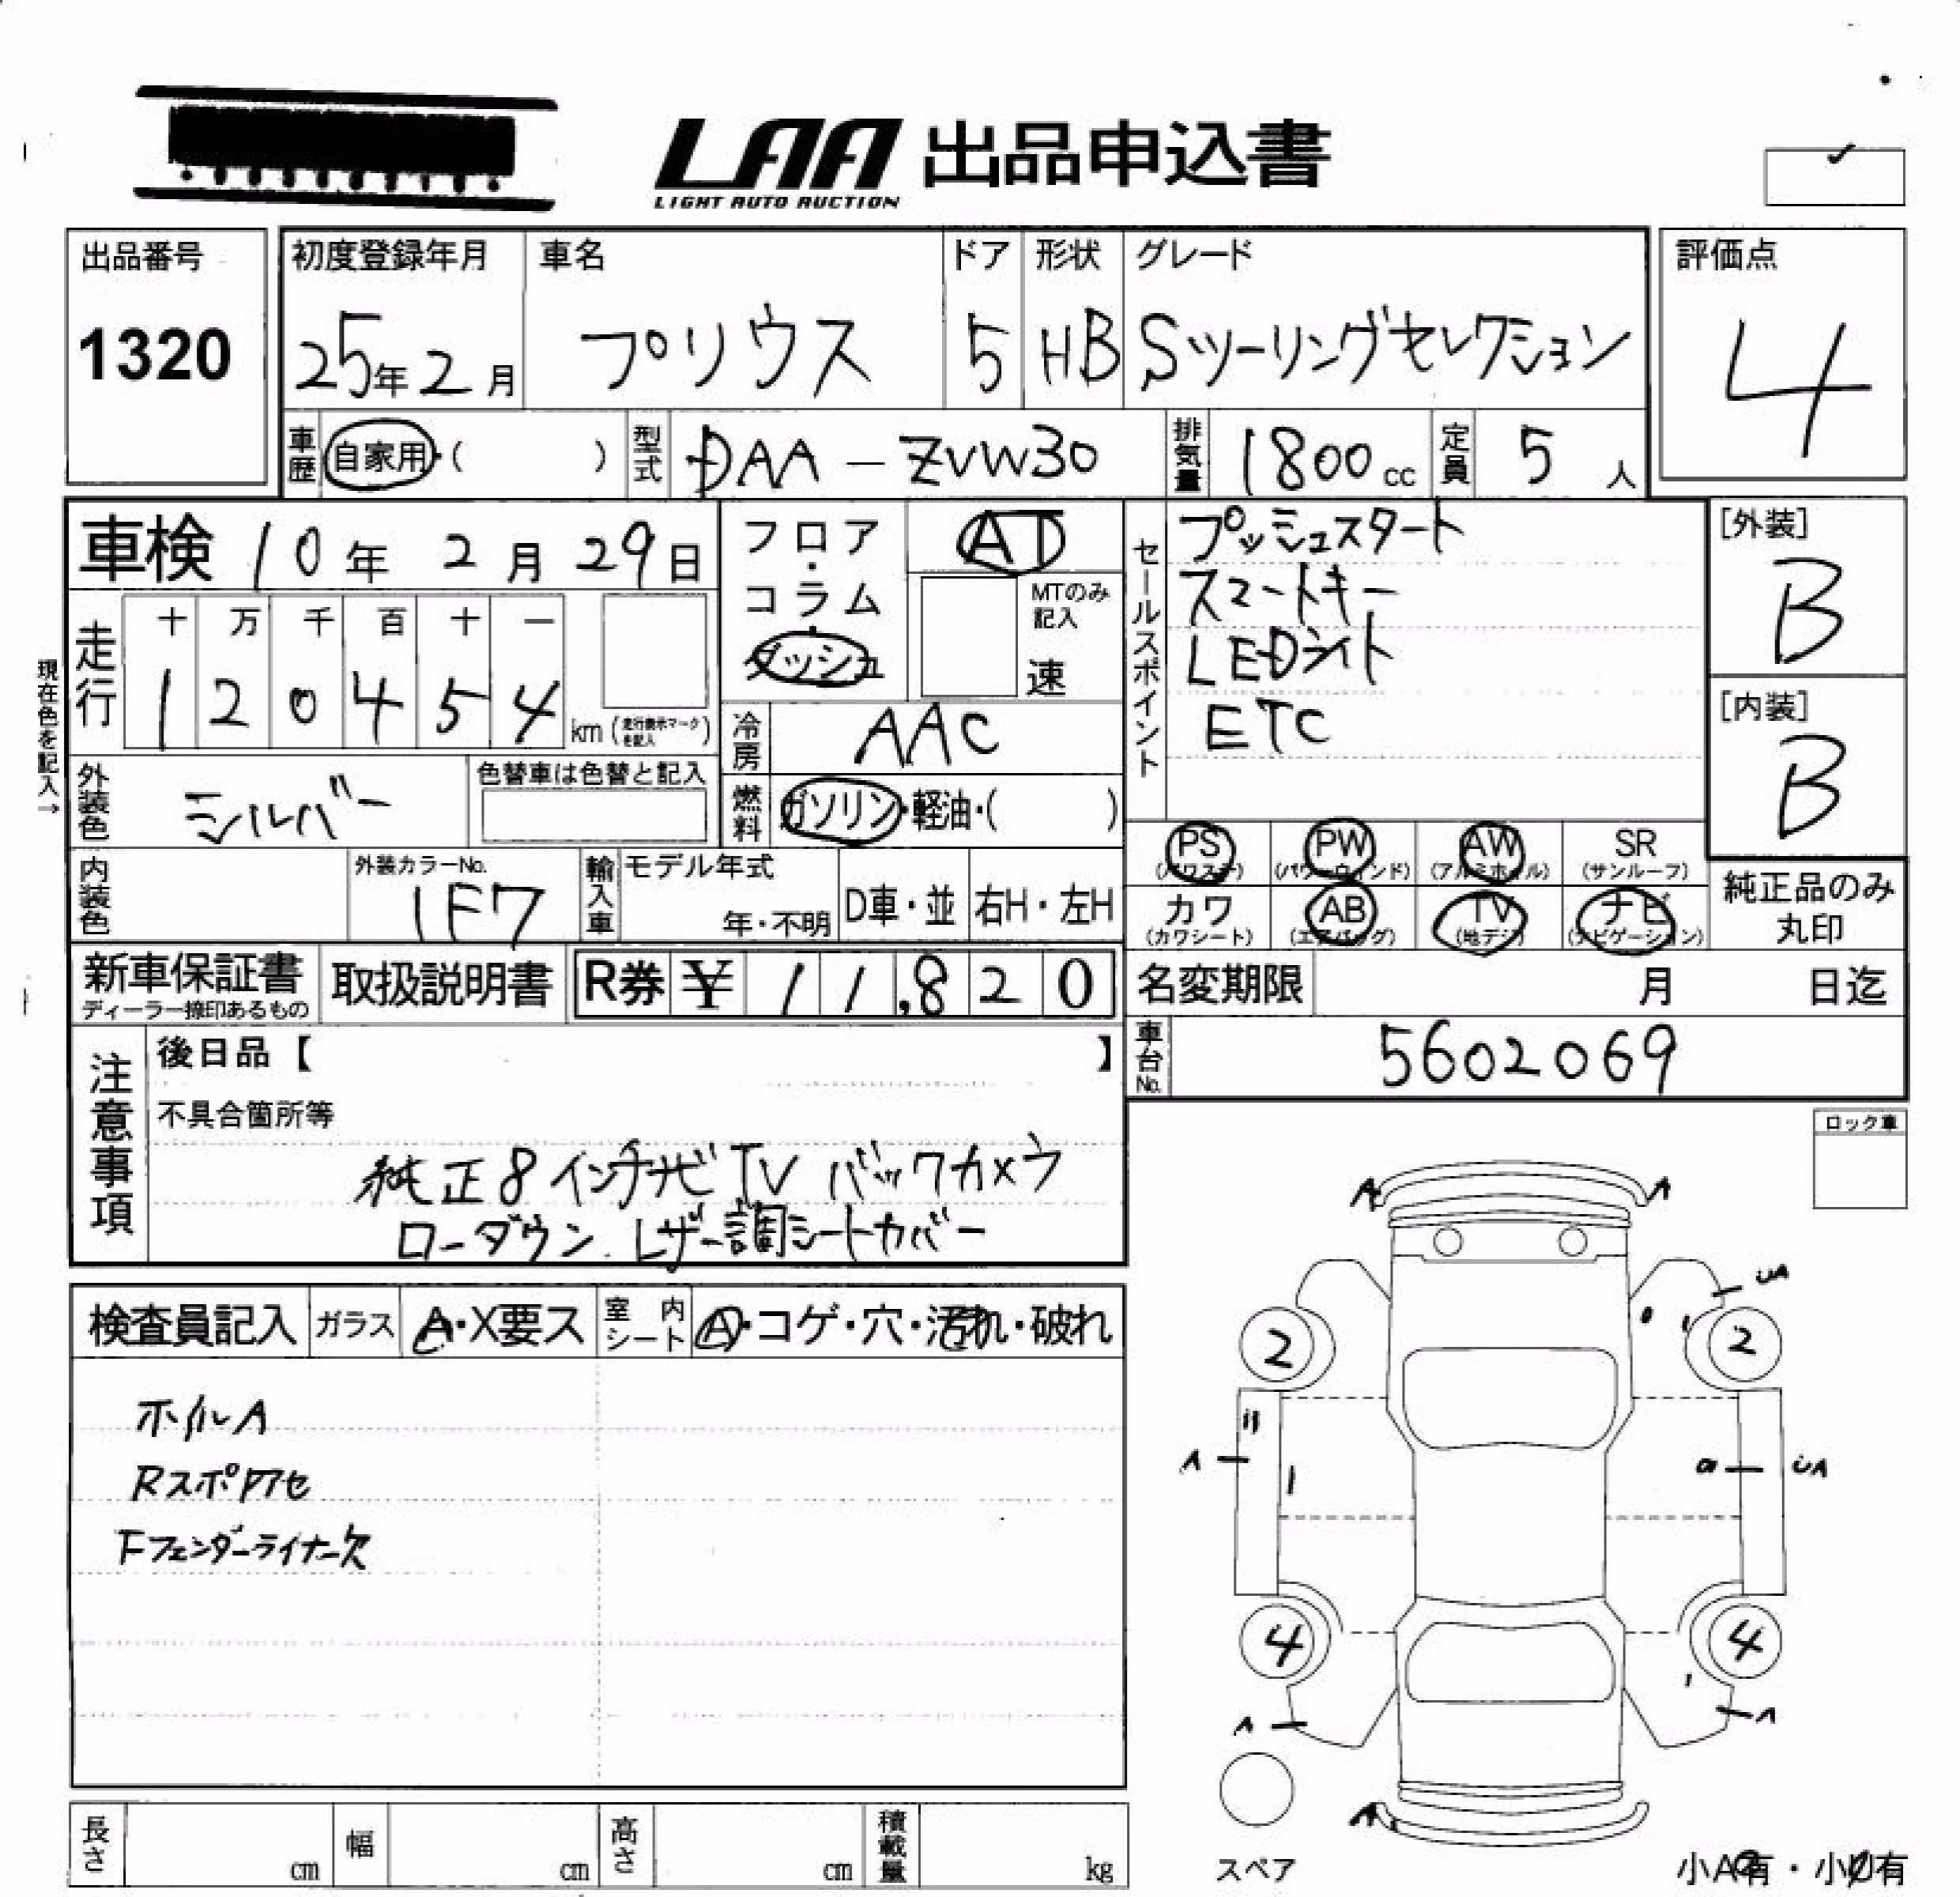 LAA 出品申込書
LIGHT AUTO AUCTION
出品番号
1320
初度登録年月
25年2月
車名
プリウス
ドア
5
形状
HB
グレード
Sツーリングセレクション
評価点
4
車歴
自家用・( )
型式
DAA-ZVW30
排気量
1800cc
定員
5人
車検 10年 2月 29日
現在色を記入→
走行
十 万 千 百 十 一
1 2 0 4 5 4
km (走行表示マークを記入)
フロア・コラム・ダッシュ
AT
MTのみ記入
速
冷房
AAC
燃料
ガソリン・軽油・( )
セールスポイント
プッシュスタート
スマートキー
LEDライト
ETC
[外装]
B
[内装]
B
外装色
シルバー
色替車は色替と記入
内装色
外装カラーNo.
1F7
輸入車
モデル年式
年・不明
D車・並
右H・左H
PS
(パワステ)
PW
(パワーウィンド)
AW
(アルミホイル)
SR
(サンルーフ)
カワ
(カワシート)
AB
(エアバッグ)
TV
(地デジ)
ナビ
(ナビゲーション)
純正品のみ
丸印
新車保証書
ディーラー捺印あるもの
取扱説明書
R券 ¥ 11,820
名変期限 月 日迄
車台No.
5602069
注意事項
後日品【 】
不具合箇所等
純正8インチナビTV バックカメラ
ローダウン レザー調シートカバー
ロック車
検査員記入
ガラス
A・X要ス
室内シート
A・コゲ・穴・汚れ・破れ
ホイルA
Fフェンダーライナー欠
A
A
UA
2
2
A
UA
4
4
A
A
A
スペア
長さ cm
幅 cm
高さ cm
積載量 kg
小A有・小U有